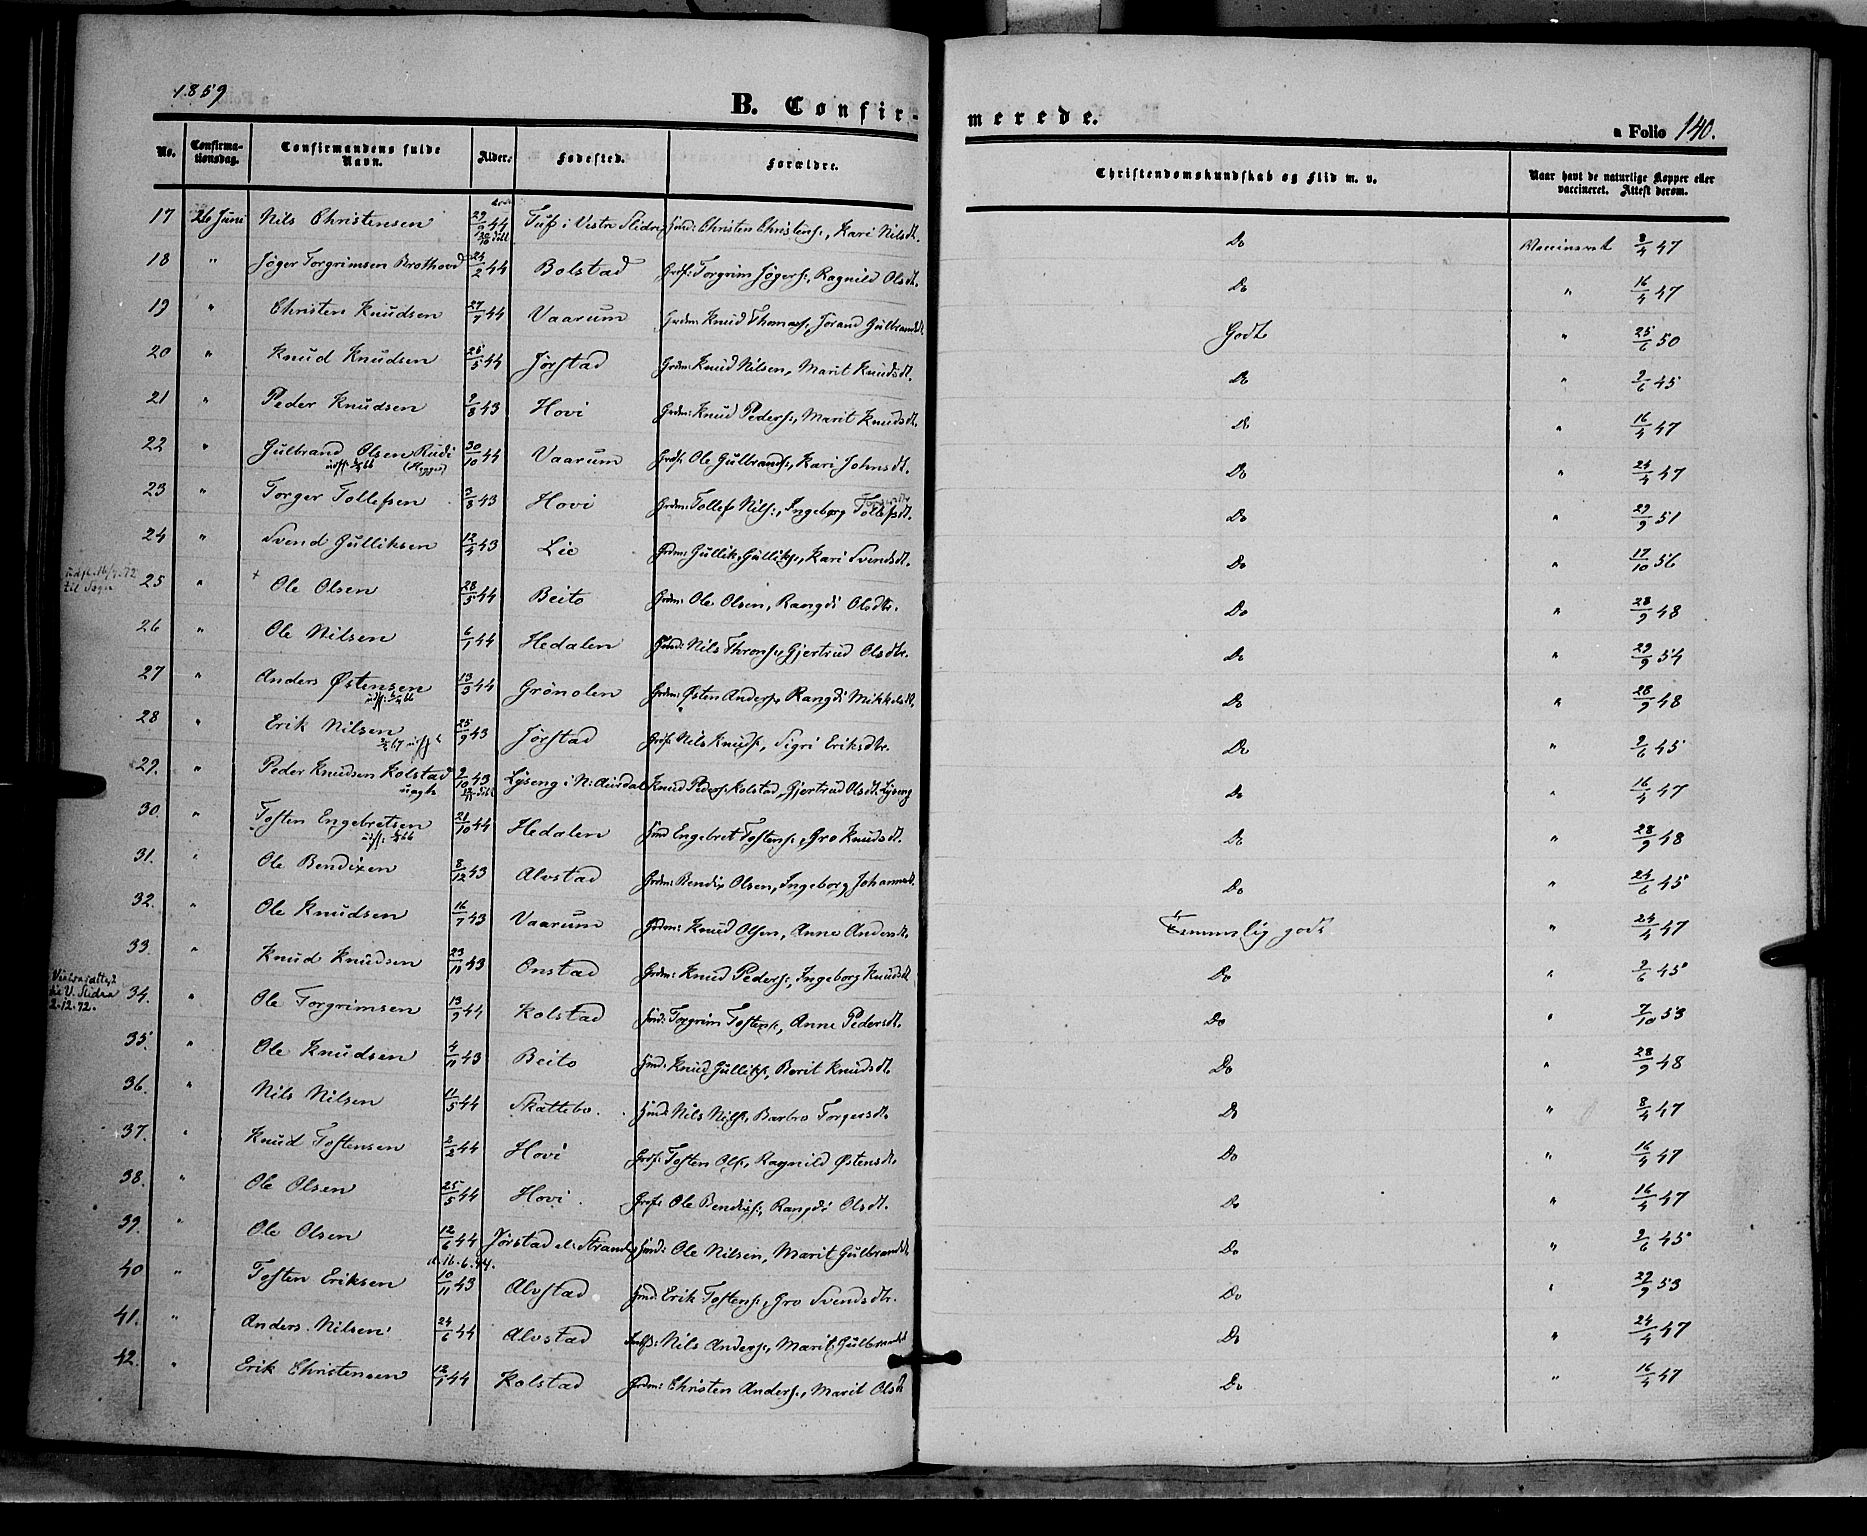 1859
B. Confirmerede.
a Folio 140.
No. Confirmationsdag. Confirmandens fulde Navn. Alder: Fødested. Forældre. Christendomskundskab og Flid m. v. Naar havt de naturlige Kopper eller vaccineret. Attest derom.
17 26 Juni Nils Christensen 29/9 44 i Vestre Slidre Christen Christens:, Kari Nilsdt. Do Vaccineret 8/4 47
18 " Jøger Torgrimsen Brothovd 24/2 44 Bolstad Grdf: Torgrim Jøgers:, Ragnild Olsdt. Do " 16/4 47
19 " Christen Knudsen 27/7 44 Vaarum Grdm: Knud Thomas:, Jorand Gulbrandsdt. Godt " 25/6 50
20 " Knud Knudsen 26/5 44 Jørstad Grdm: Knud Nilsen, Marit Knudsdt. Do " 2/6 45
21 " Peder Knudsen 9/8 43 Hovi Grdm: Knud Peders:, Marit Knudsdt. Do " 16/4 47
22 " Gulbrand Olsen Rudi (Hegge) 30/10 44 Vaarum Grdf: Ole Gulbrands:, Kari Johnsdt. Do " 24/4 47
23 " Torger Tollefsen 3/8 43 Hovi Grdm: Tollef Nils:, Ingeborg Tollefsdt. Do " 29/9 51
24 " Svend Gulliksen 12/4 43 Lie Grdm: Gullik Gulliks:, Kari Svendsdt. Do " 17/10 56
25 " + Ole Olsen 28/5 44 Beito Grdm: Ole Olsen, Rangdi Olsdtr. Do " 28/9 48
26 " Ole Nilsen 6/1 44 Hedalen Hmd: Nils Throns:, Gjertrud Olsdtr. Do " 29/9 54
27 " Anders Østensen 13/3 44 Grønolen Grdm: Østen Anders:, Rangdi Mikkelsdt. Do " 28/9 48
28 " Erik Nilsen 25/9 43 Jørstad Grdf: Nils Knuds:, Sigri Eriksdtr. Do " 2/6 45
29. " Peder Knudsen Kolstad uægte 9/10 43 Lyseng i N: Aurdal Knud Peders: Kolstad, Gjertrud Olsdt. Lyseng Do " 16/4 47
30. " Tosten Engebretsen 21/10 44 Hedalen Hmd Engebret Tostens:, Gro Knudsdt. Do " 28/9 48
31. " Ole Bendixen 8/12 43 Alvstad Grdm: Bendix Olsen, Ingeborg Johannesdt. Do " 24/6 45
32. " Ole Knudsen 16/7 43 Vaarum Grdm: Knud Olsen, Anne Andersdt. Temmelig godt " 24/4 47
33. " Knud Knudsen 23/11 43 Onstad Grdm: Knud Peders:, Ingeborg Knudsdt. Do " 2/6 45
V. Slidre 2.12.72.
34. " Ole Torgrimsen 13/9 44 Kolstad Hmd: Torgrim Tostens:, Anne Pedersdt. Do " 7/10 53
35. " Ole Knudsen 4/11 43 Beito Hmd: Knud Gulliks:, Berit Knudsdt. Do " 28/9 48
36. " Nils Nilsen 11/5 44 Skattebo. Hmd: Nils Nils:, Barbro Torgersdt. Do " 8/4 47
37. " Knud Tostensen 2/2 44 Hovi Grdf: Tosten Ols:, Ragnild Østensdt. Do " 16/4 47
38. " Ole Olsen 25/5 44 Hovi. Grdf: Ole Bendixs:, Rangdi Olsdt. Do " 16/4 47
39. " Ole Olsen 12/6 44 Jørstad el: Strande Hmd: Ole Nilsen, Marit Gulbrandsdt. Do " 2/6 45
40 " Tosten Eriksen 10/11 43 Alvstad Hmd: Erik Tostens:, Gro Svendsdtr. Do " 29/9 53
41. " Anders Nilsen 24/6 44 Alvstad Nils Anders:, Marit Gulbrandsdt Do " 24/4 47
42. " Erik Christensen 12/1 44 Kolstad Grdm: Christen Anders:, Marit Olsdt Do " 16/4 47